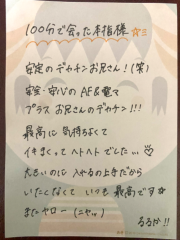 100分で会った本指様☆
安定のデカチンお兄さん!(笑)
安全・安心のAF&電マ
プラス お兄さんのデカチン!!!
最高に 気持ちよくて
イキまくって ヘトヘトでした… ♡
大きいのに 上手だから
いたくなくて いつも 最高です
またヤロー (ニヤッ)
るるか!!